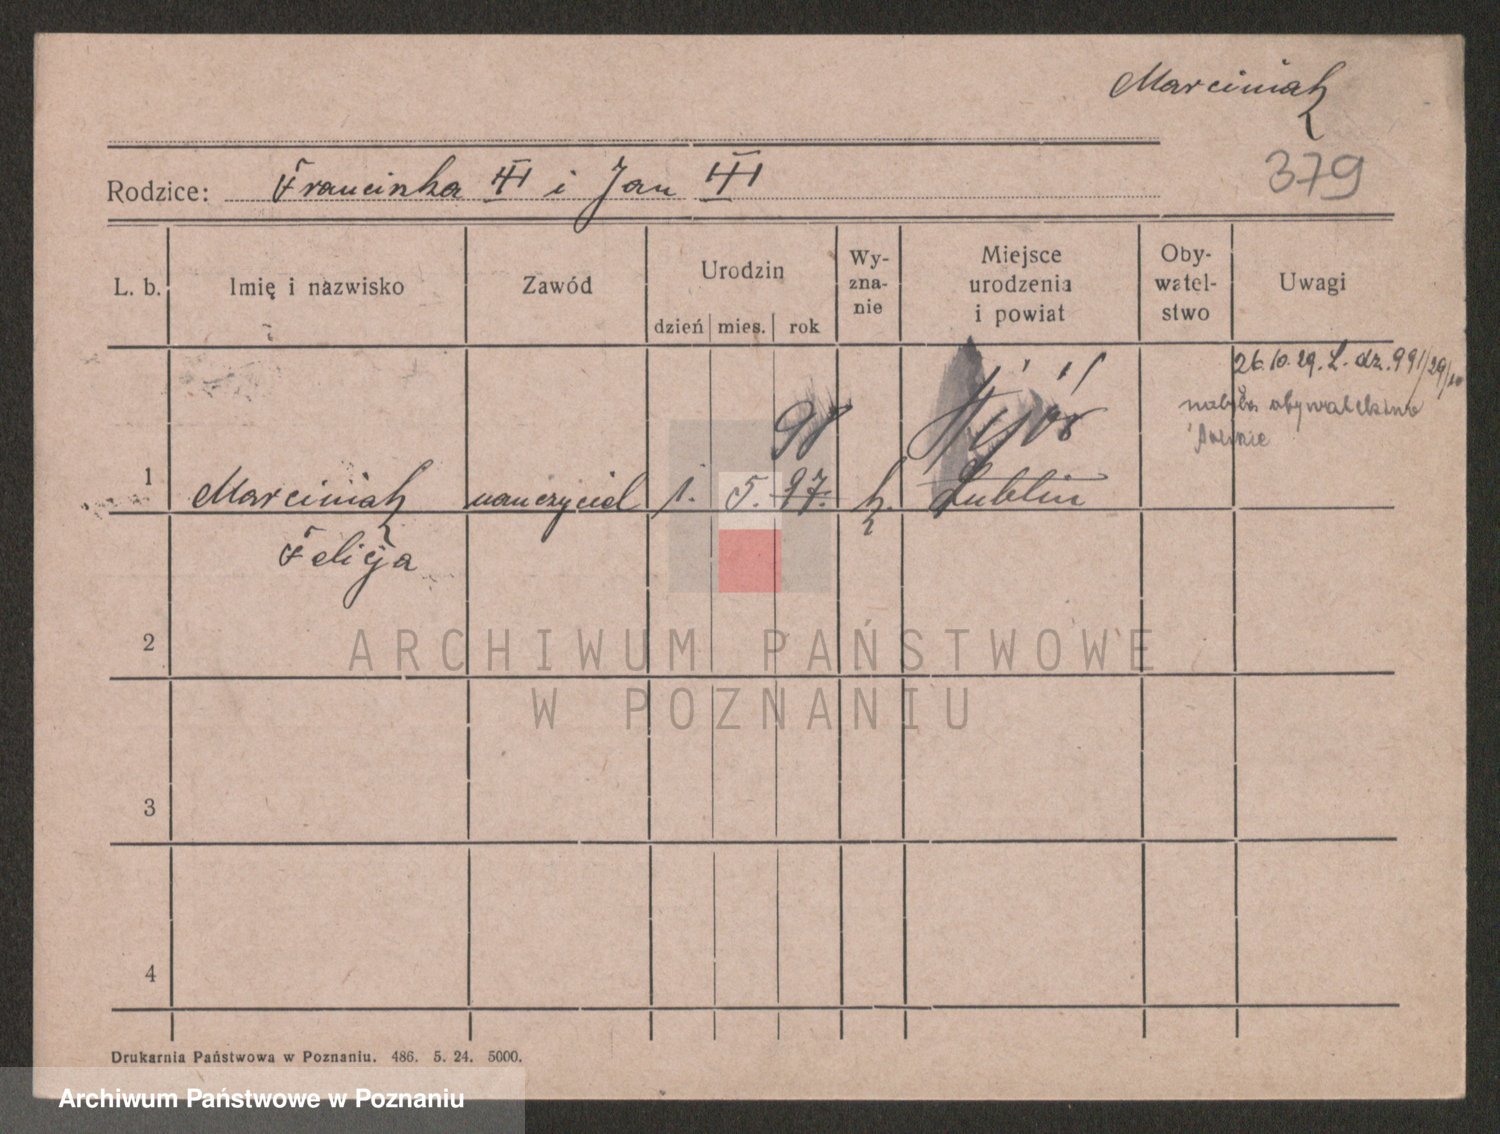 Marciniak
379
Rodzice: Franciszka III i Jan III
L. b. Imię i nazwisko Zawód Urodzin dzień mies. rok Wy-zna-nie Miejsce urodzenia i powiat Oby-watel-stwo Uwagi
26.10.29. L. dz. 991/29
nabyła obywatelstwo
98
1 Marciniak nauczyciel 1. 5. 97. k. Lublin
Felicja
2
ARCHIWUM PAŃSTWOWE
W POZNANIU
3
4
Drukarnia Państwowa w Poznaniu. 486. 5. 24. 5000.
Archiwum Państwowe w Poznaniu